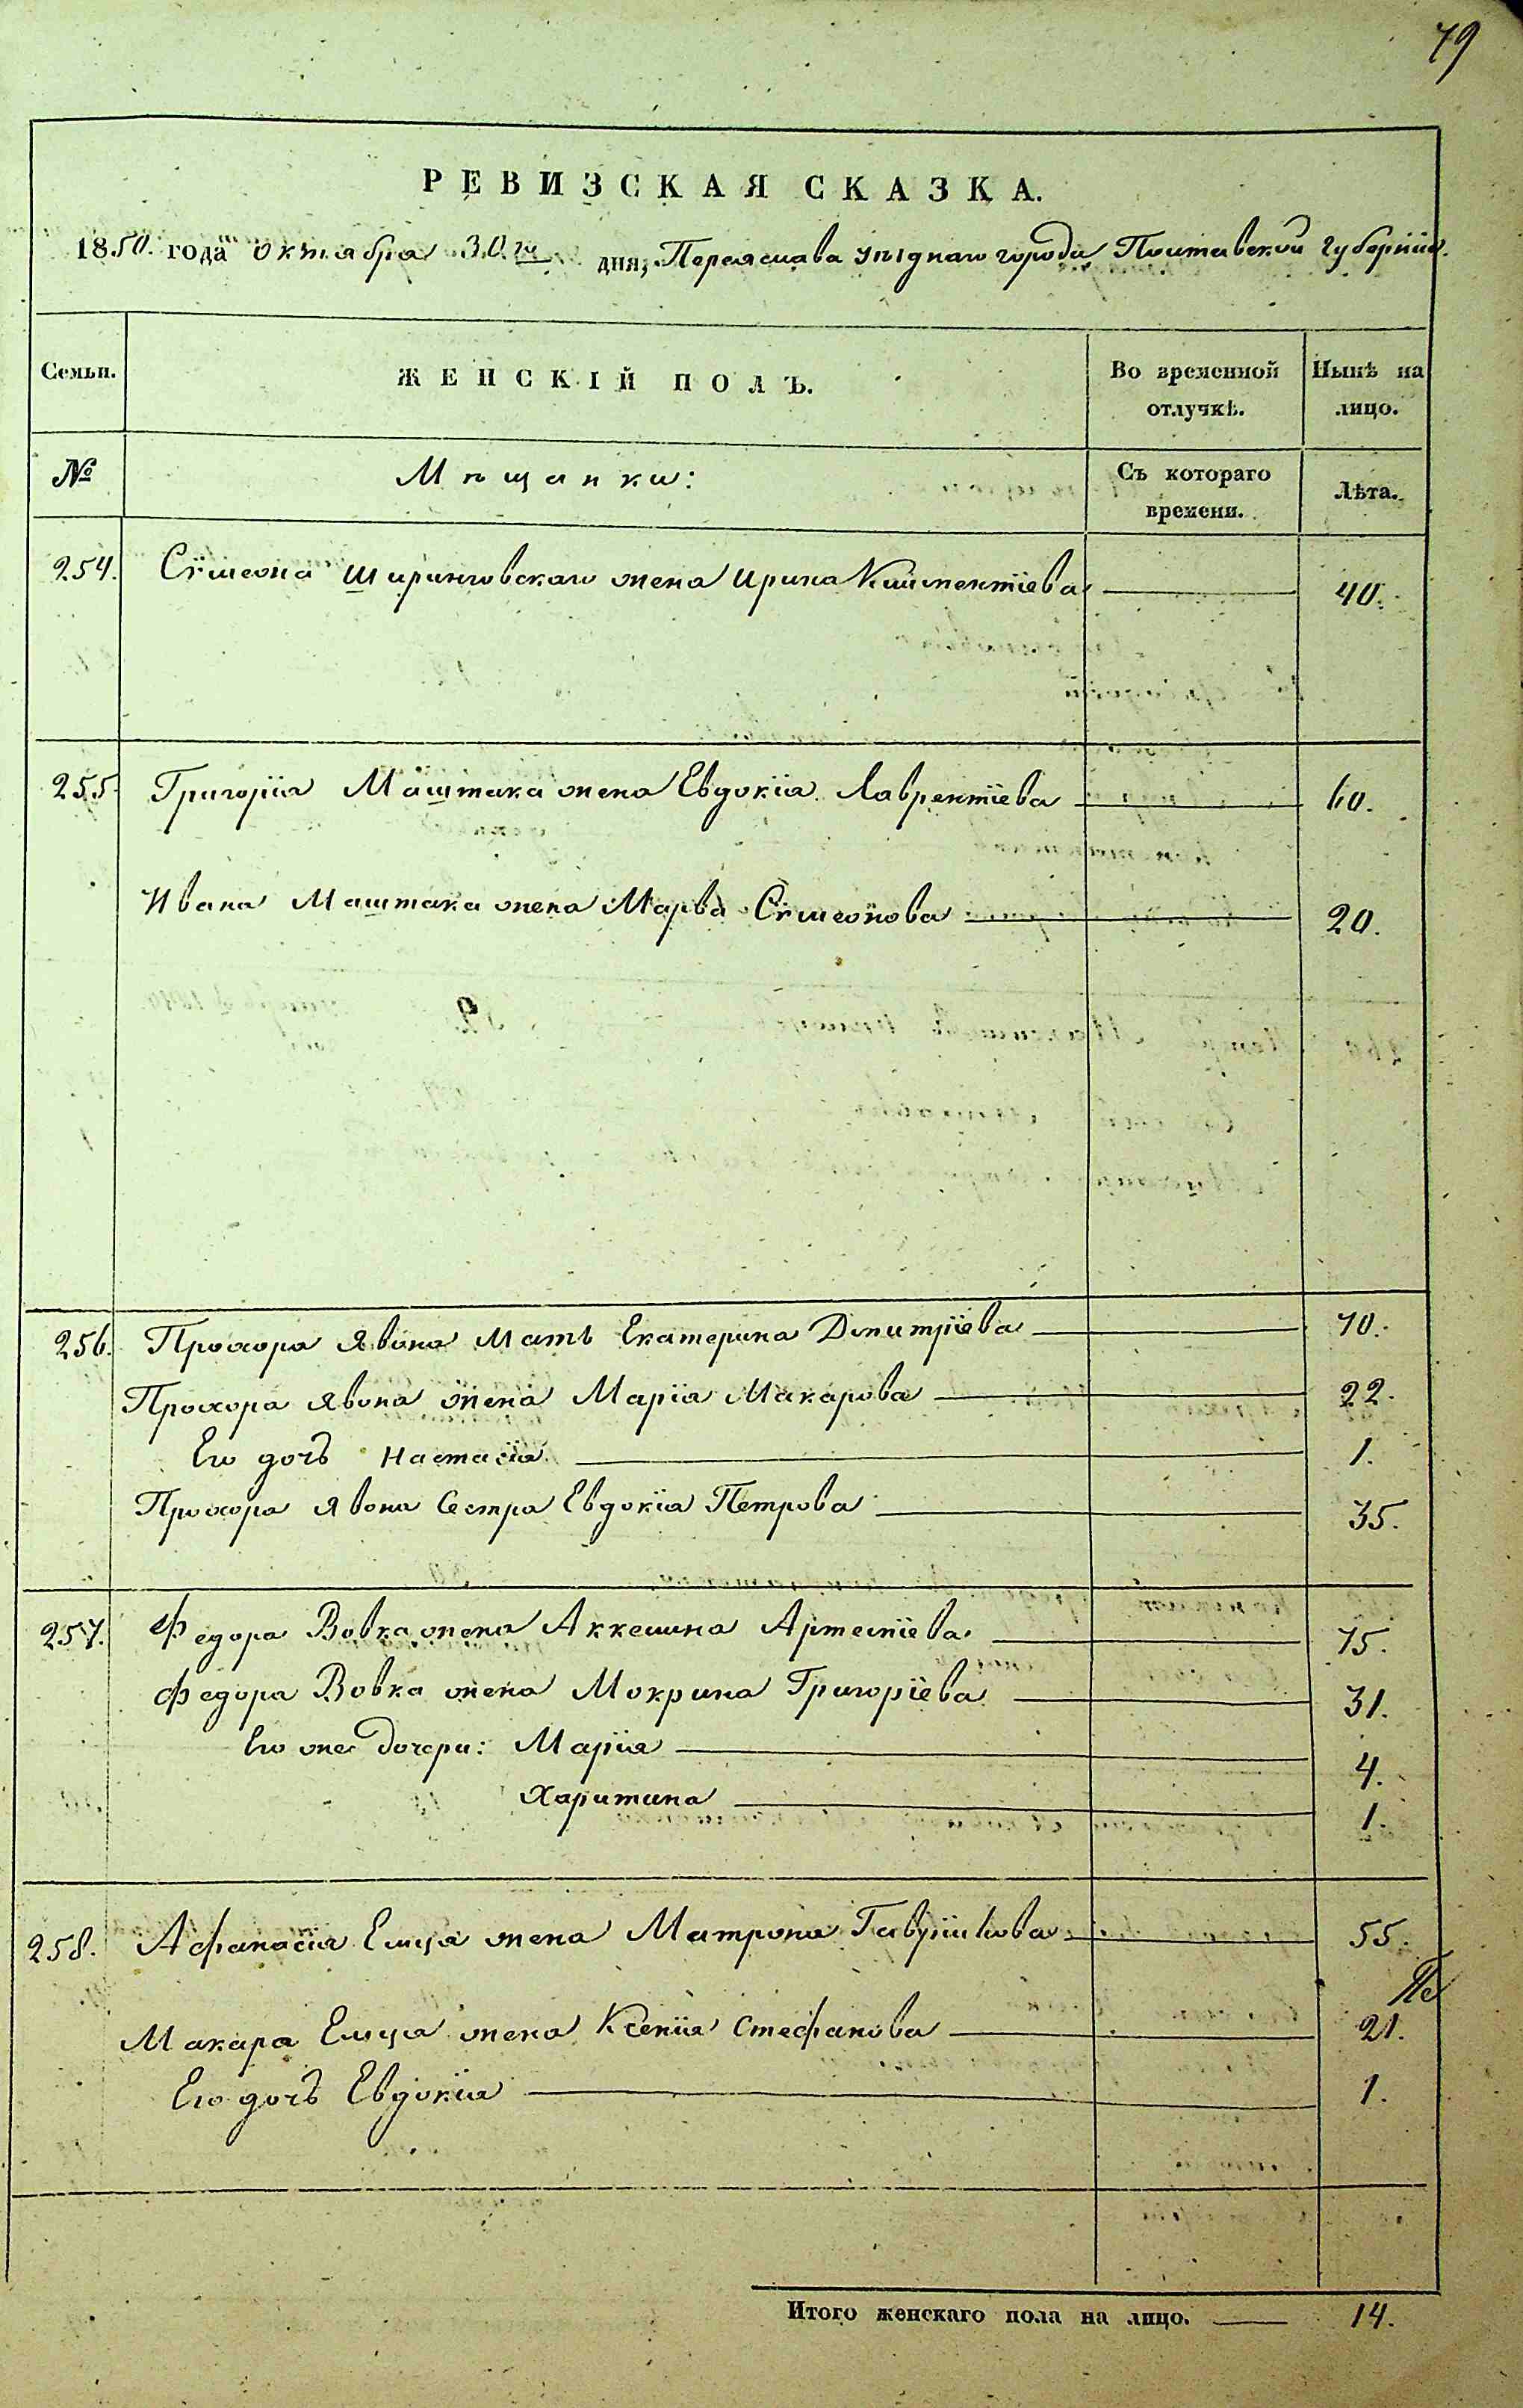 79
РЕВИЗСКАЯ СКАЗКА.
1850. года октября 30го дня, Переяслава уѣзднаго города Полтавской Губерніи.
Семьи. ЖЕНСКІЙ ПОЛЪ. Во временной отлучкѣ. Нынѣ на лицо.
№ Мѣщанки: Съ котораго времени. Лѣта.
254. Сѵмеона жена Ирина Климентіева 40.
255. Григорія Маштака жена Евдокія Лаврентіева 60.
Ивана Маштака жена Марѳа Сѵмеонова 20.
256. Прохора Явона мать Екатерина Дмитріева 70.
Прохора Явона жена Марія Макарова 22.
Его дочь Настасія 1.
Прохора Явона Сестра Евдокія Петрова 35.
257. Федора Вовка жена Аккелина 75.
Федора Вовка жена Мокрина Григоріева 31.
Его же дочери: Марія 4.
Харитина 1.
258. Афанасія Емца жена Матрона Гавріилова 55.
Макара Емца жена Ксенія Стефанова 21.
Его дочь Евдокія 1.
Итого женскаго пола на лицо. 14.